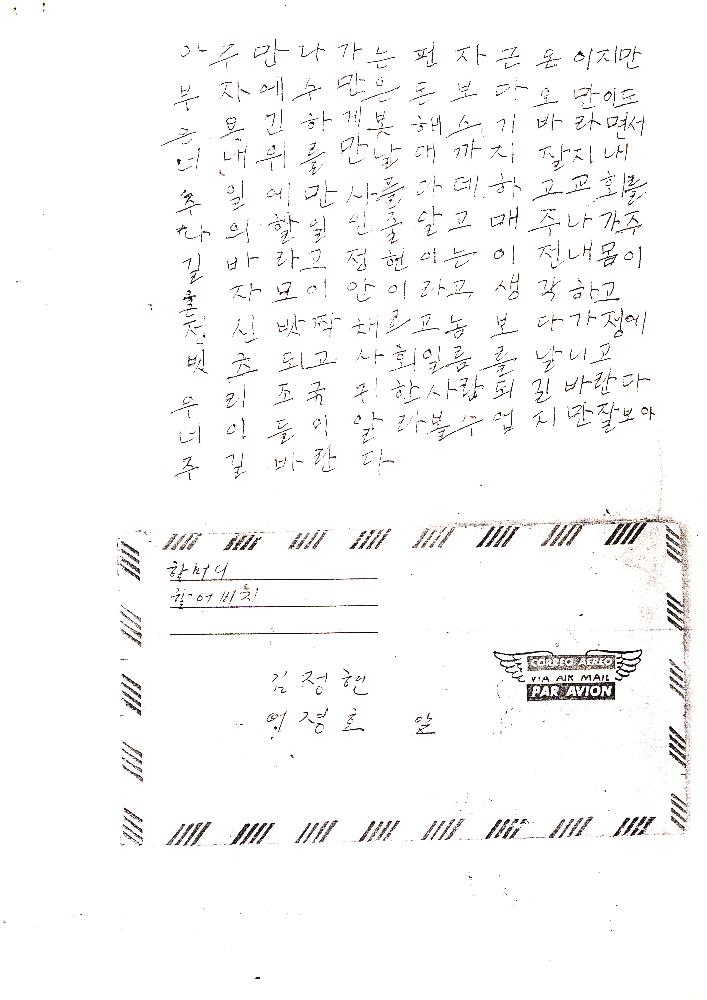 아주 만나가는 편자근 온이지만
부자에 수만은 돈보다 오만이도
근 보긴하게 봇해스기 바라면서
너내위를 만날대까지 잘지내
주일에만 사플아데하고 교회를
나의 할일인줄알고 매주나가주
길바라고 정현이는 이전내몸이
홀자모이 안이라고 생각하고
정신 밧짝채르고 농보다 가정에
빗츠되고 사회일름를 날니고
우리 조국 귀한사람 되길바란다
너이들이 알라볼수업지만 잘보아
주길 바란다
할머니
할어버지
CORREO AEREO
VIA AIR MAIL
PAR AVION
김정현
이정호 앞